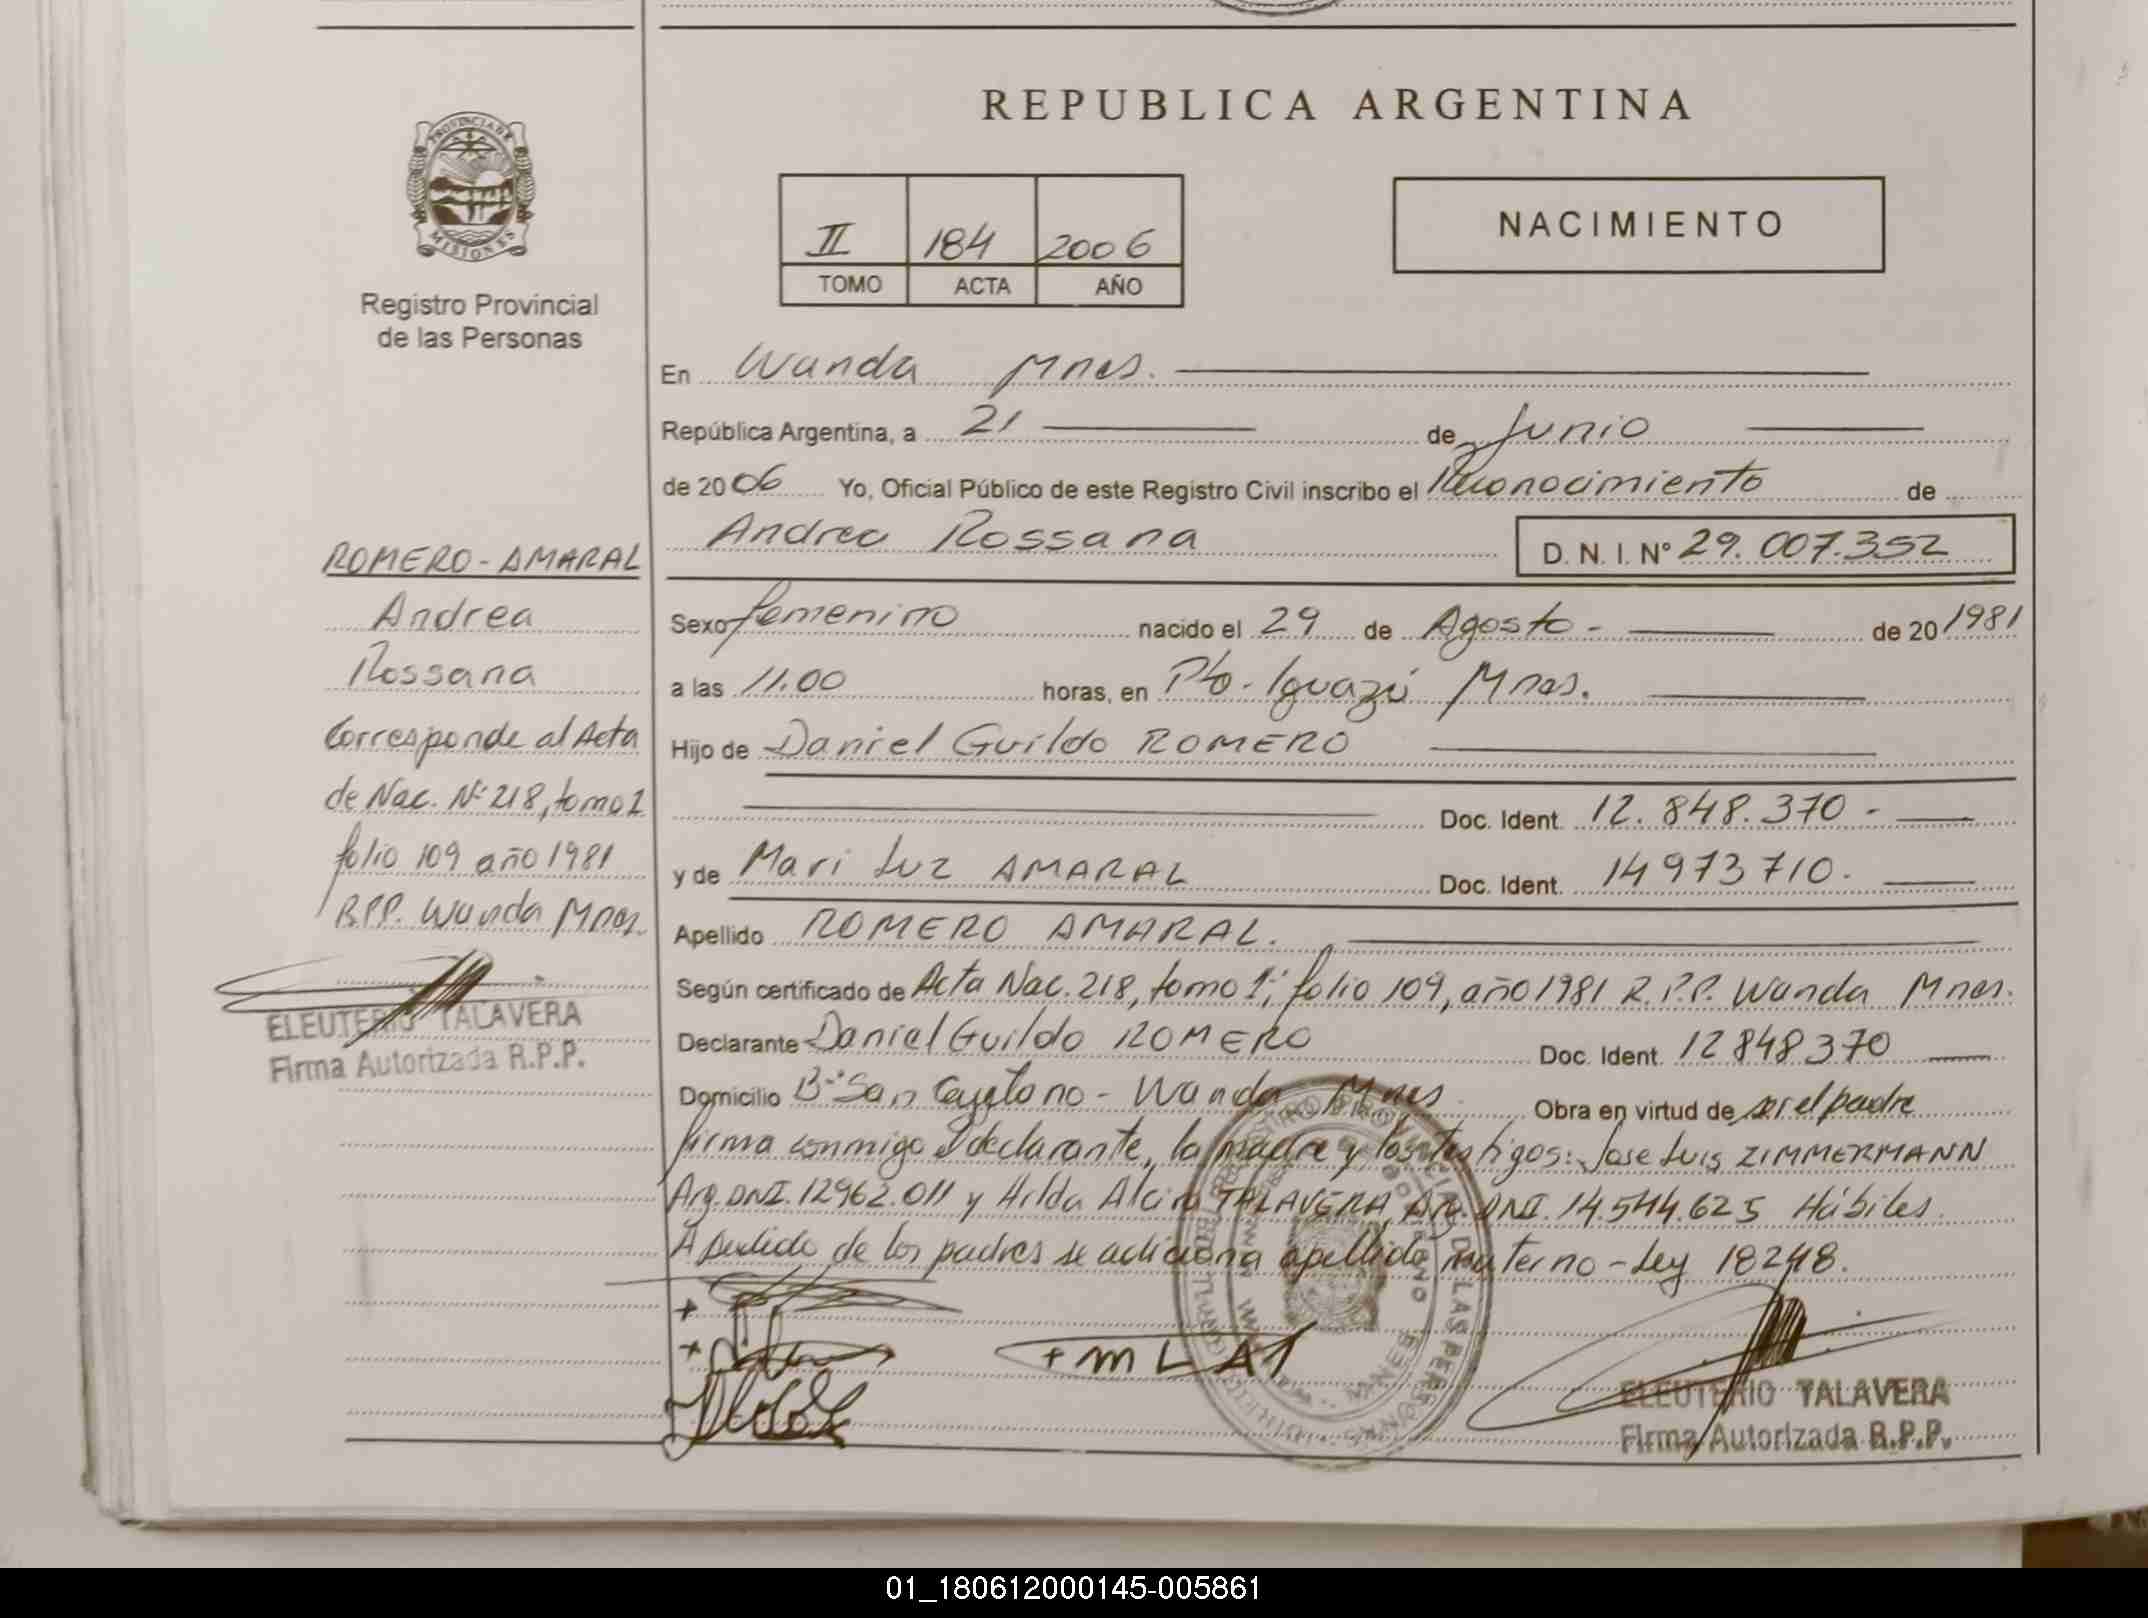 REPUBLICA ARGENTINA
PROVINCIA DE
MISIONES
Registro Provincial
de las Personas
II 184 2006
TOMO ACTA AÑO
NACIMIENTO
En Wanda Mnes.
República Argentina, a 21 de Junio
de 2006 Yo, Oficial Público de este Registro Civil inscribo el Reconocimiento de
Andrea Rossana D. N. I. Nº 29.007.352
Sexo femenino nacido el 29 de Agosto - de 20 1981
a las 11.00 horas, en Pto. Iguazú Mnes.
Hijo de Daniel Guildo ROMERO
Doc. Ident. 12.848.370 -
y de Mari Luz AMARAL Doc. Ident. 14973710.
Apellido ROMERO AMARAL.
Según certificado de Acta Nac. 218, tomo 1, folio 109, año 1981 R.P.P. Wanda Mnes.
Declarante Daniel Guildo ROMERO Doc. Ident. 12848370
Domicilio Bº San Cayetano - Wanda Mnes. Obra en virtud de ser el padre
firma conmigo el declarante, la madre y los testigos: Jose Luis ZIMMERMANN
Arg. DNI. 12962.011 y Hilda Alcira TALAVERA, Arg. DNI. 14.544.625 Hábiles.
A pedido de los padres se adiciona apellido materno - Ley 18248.
ROMERO - AMARAL
Andrea
Rossana
Corresponde al Acta
de Nac. Nº 218, tomo 1
folio 109 año 1981
R.P.P. Wanda Mnes.
ELEUTERIO TALAVERA
Firma Autorizada R.P.P.
+ M L A
ELEUTERIO TALAVERA
Firma Autorizada R.P.P.
01_180612000145-005861